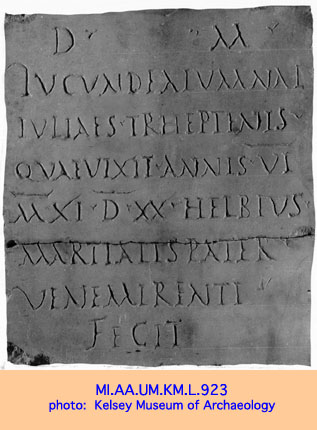 D M
IVCVNDE ALVMNAE
IVLIAES · TRHEPTENIS ·
QVAE VIXIT · ANNIS · VI
M XI · D · XX · HELBIVS
MARTIALIS PATER
VENEMERENTI
FECIT
MI.AA.UM.KM.L.923
photo: Kelsey Museum of Archaeology